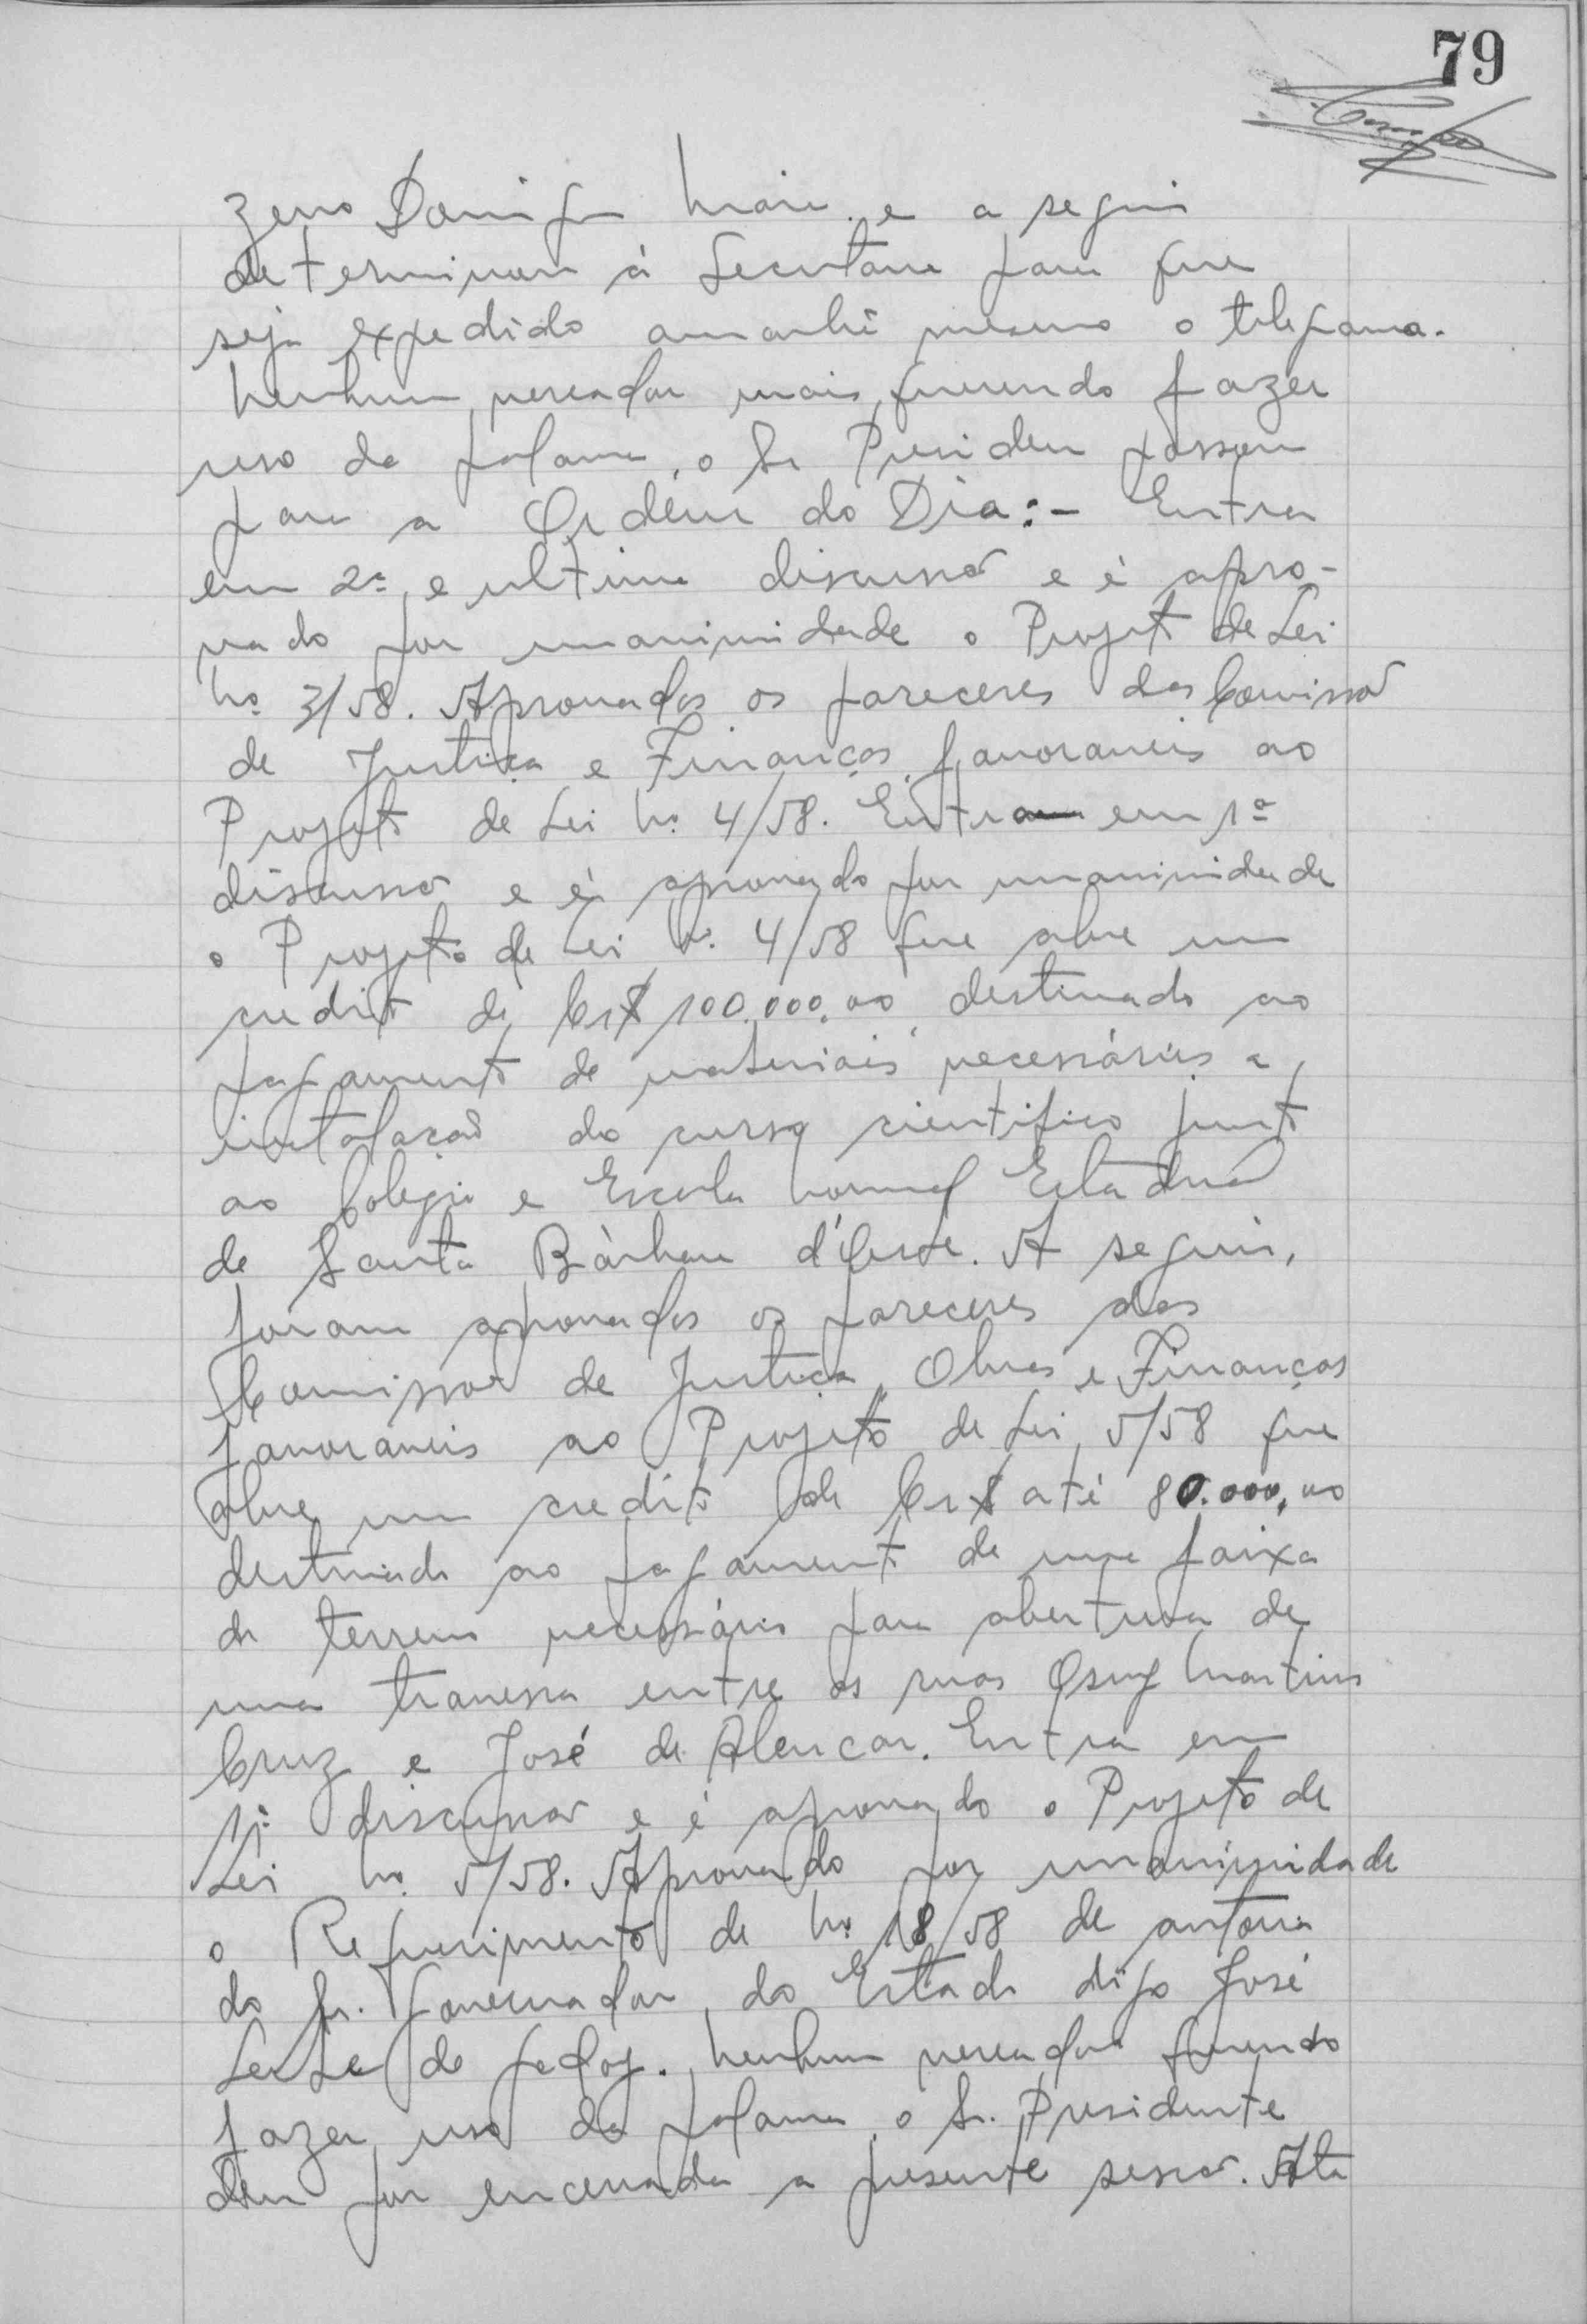 79
Zeno Domingos Maia e a seguir
determinou à Secretaria para que
seja expedido amanhã mesmo o telegrama.
Nenhum vereador mais querendo fazer
uso da palavra, o Sr Presidente passou
para a Ordem do Dia:- Entra
em 2ª e ultima discussão e é apro-
vado por unanimidade o Projeto de Lei
Nº 3/58. Aprovados os pareceres das Comissão
de Justiça e Finanças favoraveis ao
Projeto de Lei Nº 4/58. Entra em 1ª
discussão e é aprovado por unanimidade
o Projeto de Lei Nº 4/58 que abre um
credito de Cr$ 100.000,00 destinado ao
pagamento de materiais necessários a
instalação do curso cientifico junto
ao Colegio e Escola Normal Estadual
de Santa Bárbara d'Oeste. A seguir,
foram aprovados os pareceres das
Comissão de Justiça, Obras e Finanças
favoraveis ao Projeto de Lei 5/58 que
abre um credito de Cr$ até 80.000,00
destinado ao pagamento de uma faixa
de terreno necessário para abertura de
uma travessa entre as ruas Martins
Cruz e José de Alencar. Entra em
1ª discussão e é aprovado o Projeto de
Lei Nº 5/58. Aprovado por unanimidade
o Requerimento de Nº 18/58 de autoria
do Sr. Governador do Estado digo José
de Godoy. Nenhum vereador querendo
fazer uso da palavra o Sr. Presidente
deu por encerrada a presente sessão. Ata